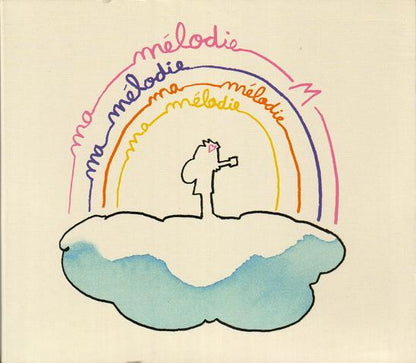 ma mélodie M
ma mélodie
ma mélodie
ma mélodie